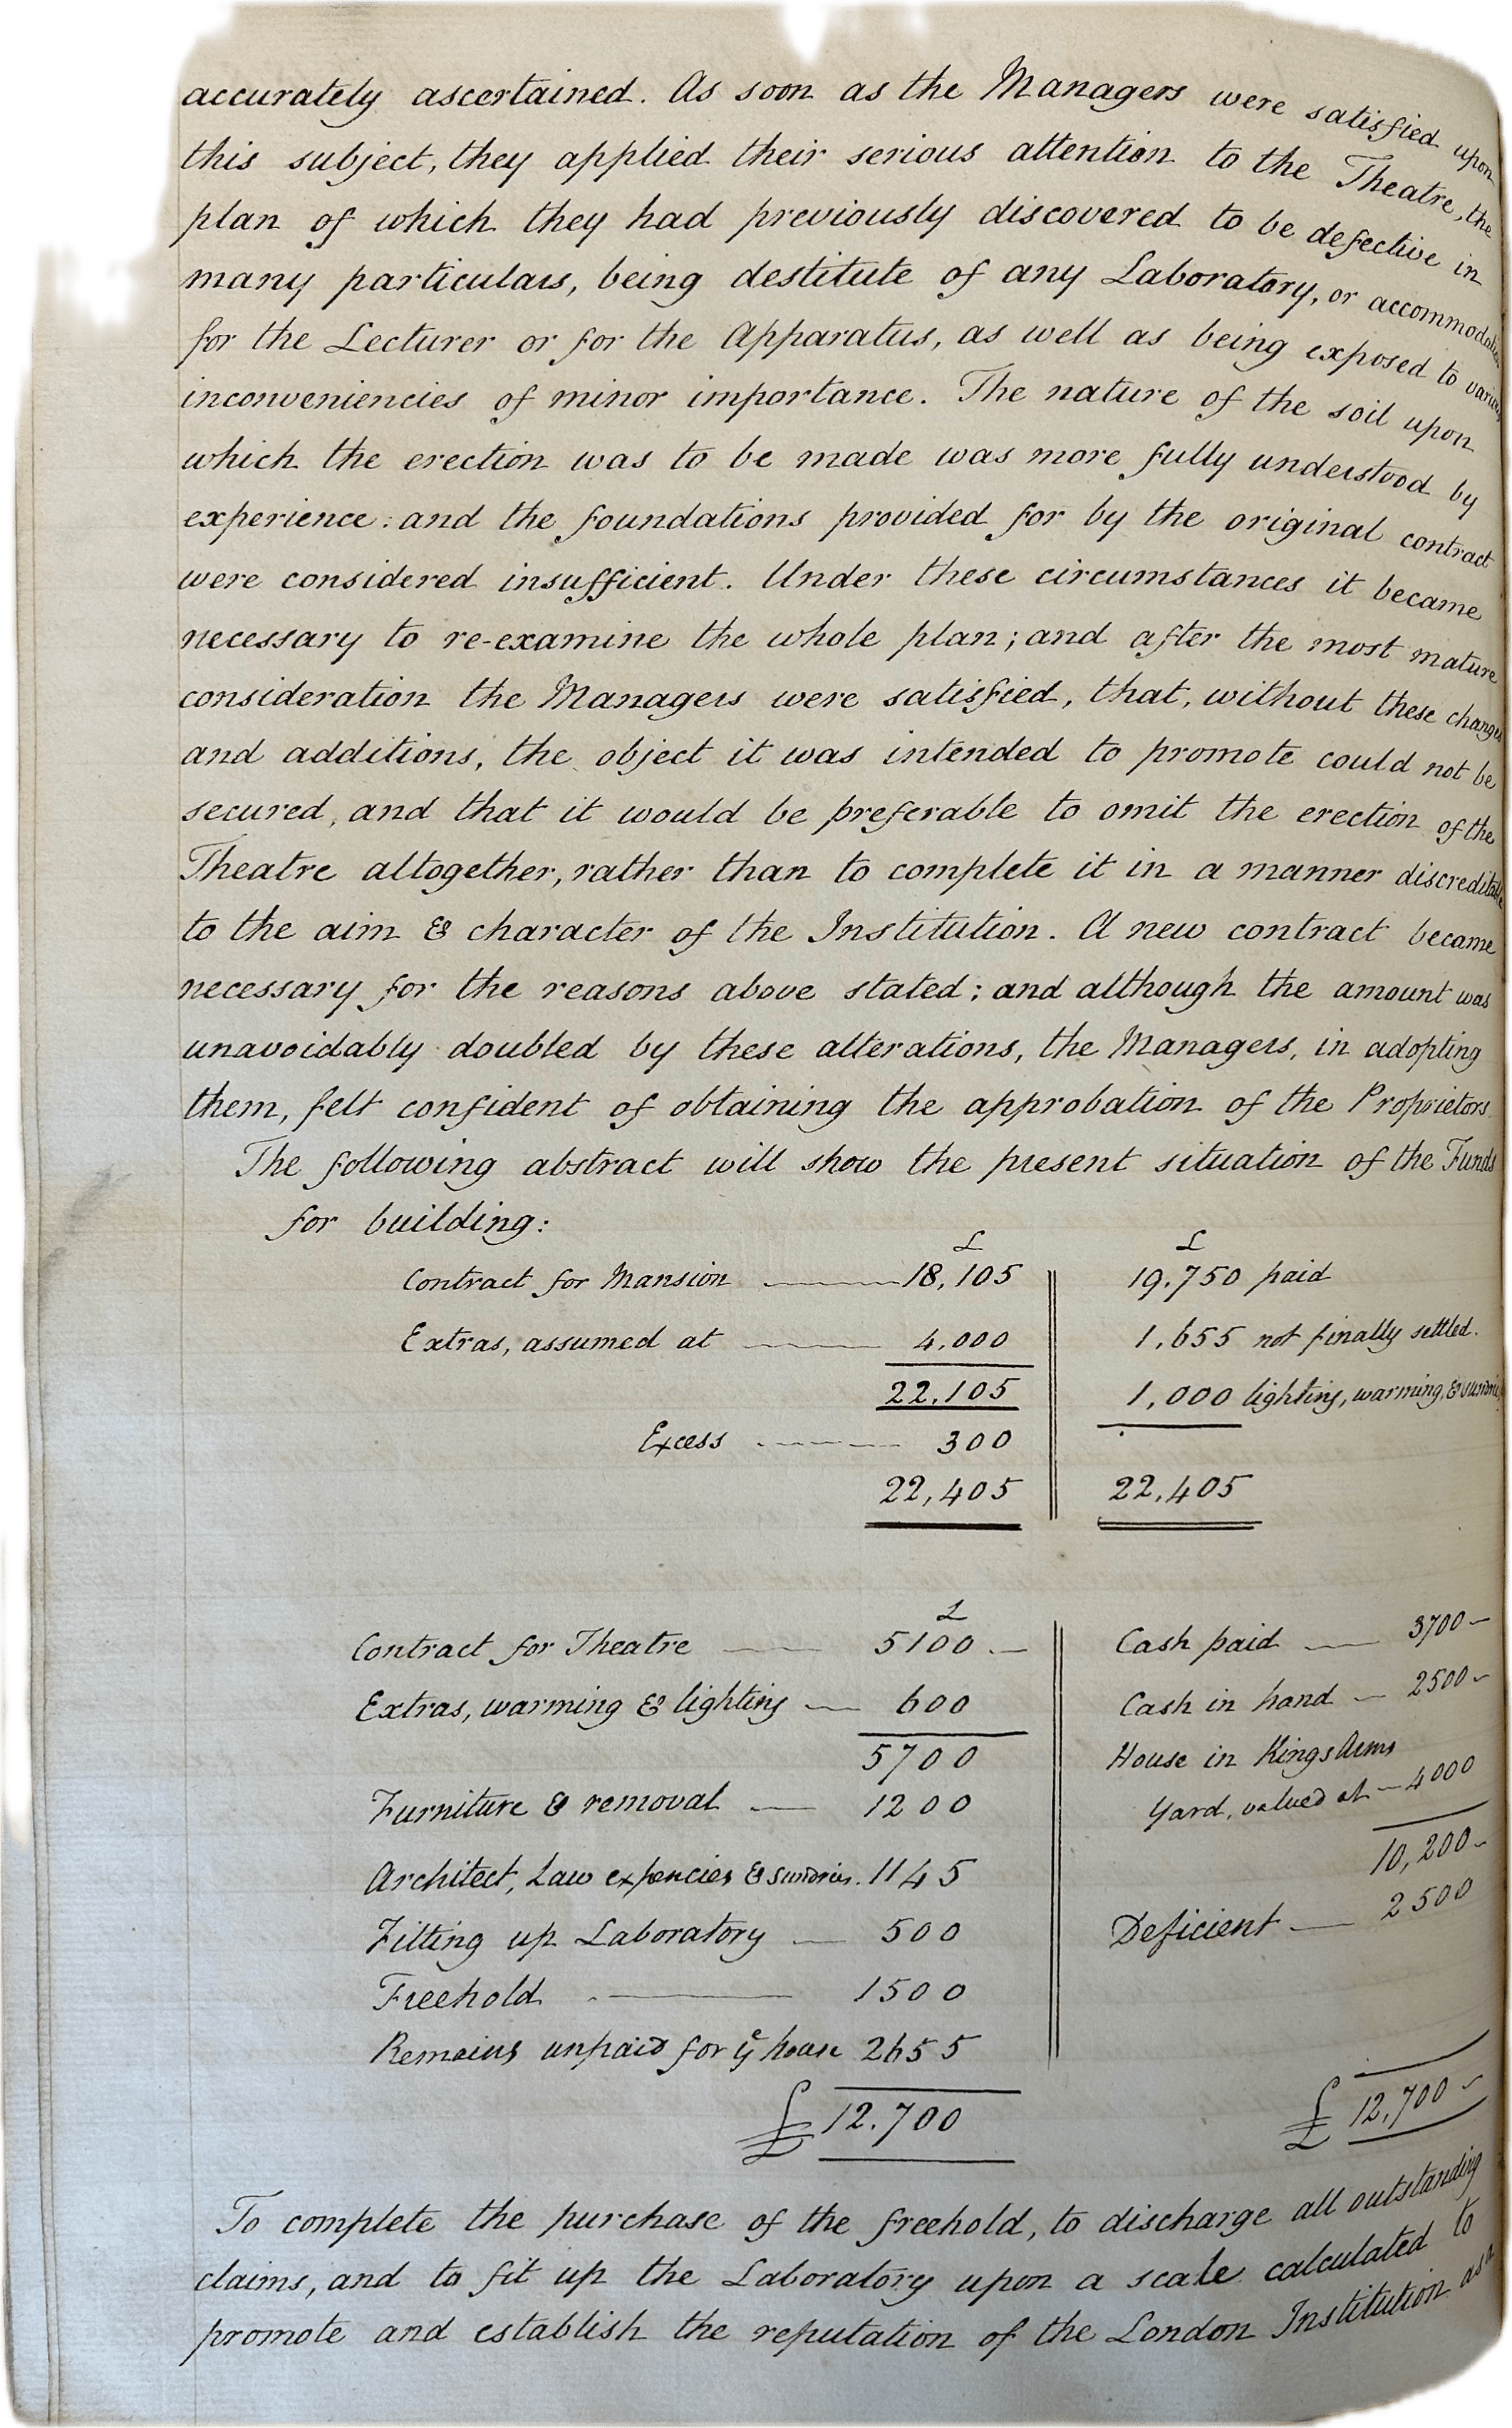 accurately ascertained. As soon as the Managers were satisfied upon
this subject, they applied their serious attention to the Theatre, the
plan of which they had previously discovered to be defective in
many particulars, being destitute of any Laboratory, or accommodation
for the Lecturer or for the Apparatus, as well as being exposed to various
inconveniencies of minor importance. The nature of the soil upon
which the erection was to be made was more fully understood by
experience: and the foundations provided for by the original contract
were considered insufficient. Under these circumstances it became
necessary to re-examine the whole plan; and after the most mature
consideration the Managers were satisfied, that, without these changes
and additions, the object it was intended to promote could not be
secured, and that it would be preferable to omit the erection of the
Theatre altogether, rather than to complete it in a manner discreditable
to the aim & character of the Institution. A new contract became
necessary for the reasons above stated; and although the amount was
unavoidably doubled by these alterations, the Managers, in adopting
them, felt confident of obtaining the approbation of the Proprietors.
The following abstract will show the present situation of the Funds
for building:
£ £
Contract for Mansion 18,105 19.750 paid
Extras, assumed at 4.000 1,655 not finally settled.
22.105 1,000 lighting, warming, & sundries
Excess 300
22,405 22.405
£
Contract for Theatre 5100.— Cash paid 3700—
Extras, warming & lighting 600 Cash in hand 2500—
5700 House in Kings Arms
Furniture & removal 1200 Yard, valued at 4000
10,200—
Architect, Law expencies & sundries. 1145
Deficient 2500
Fitting up Laboratory 500
Freehold 1500
Remains unpaid for ye house 2655
£ 12.700 £ 12,700—
To complete the purchase of the freehold, to discharge all outstanding
claims, and to fit up the Laboratory upon a scale calculated to
promote and establish the reputation of the London Institution as a